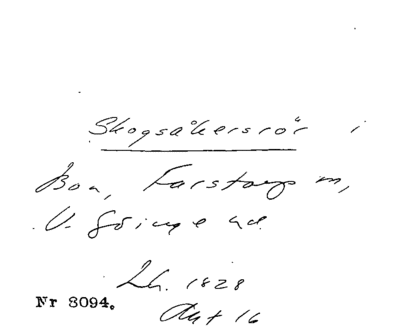 Skogsåkersrör i
Boa, Farstorp sn,
V. Göinge hd.
Lh. 1828
Akt 16
Nr 8094.